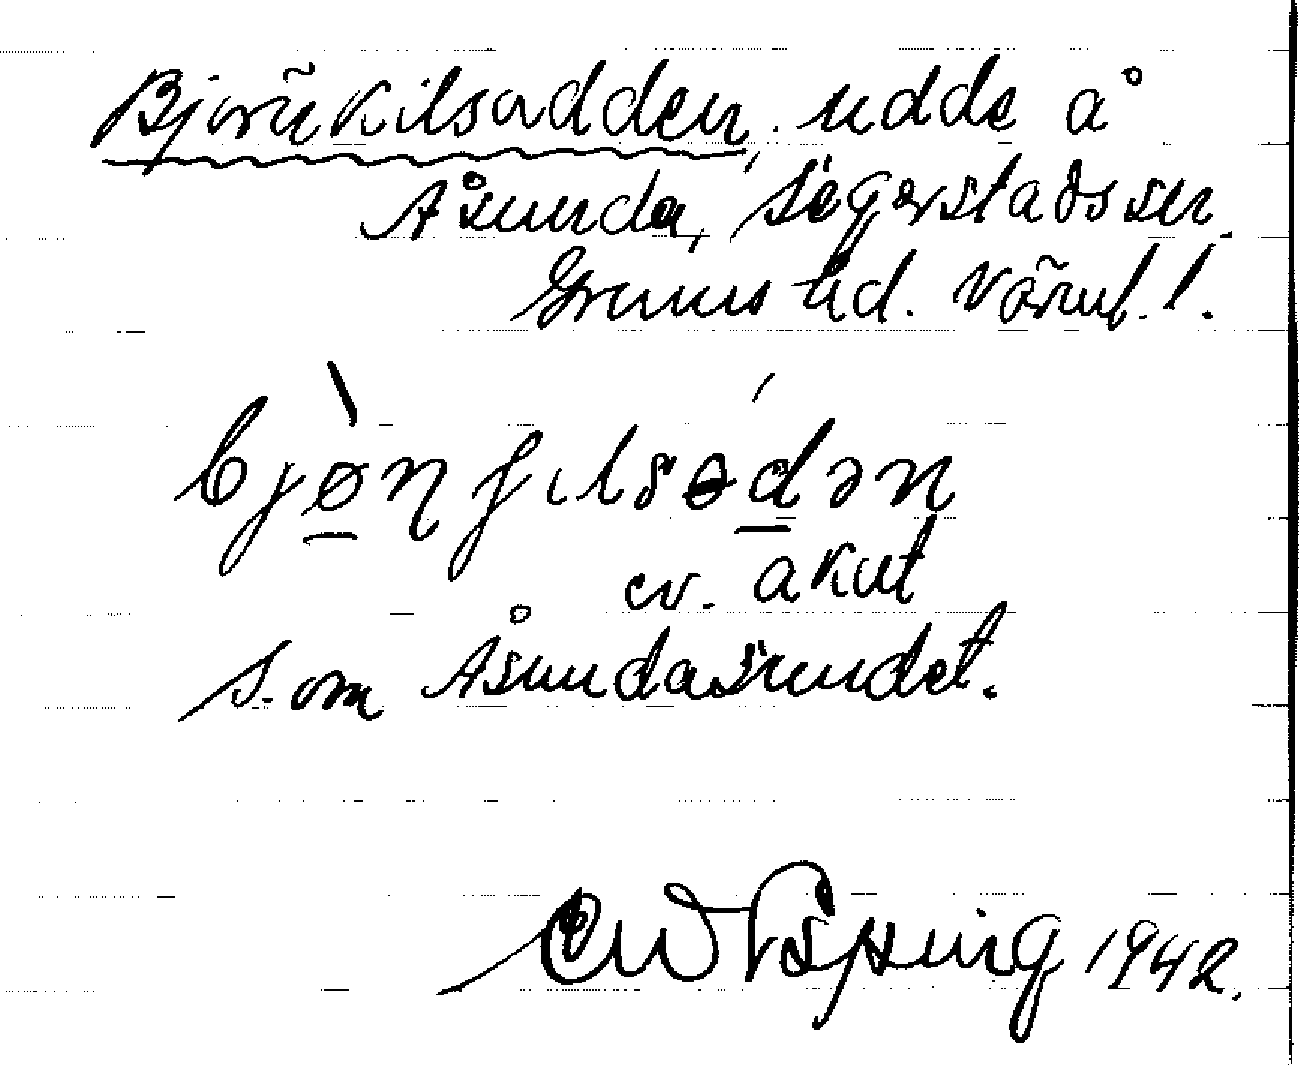 Björnkilsodden, udde å
Åsunda, Segerstads sn.
Grums hd. Värml. l.
bjønȷilsɵdən
ev. akut
S. om Åsundasundet.
1942.